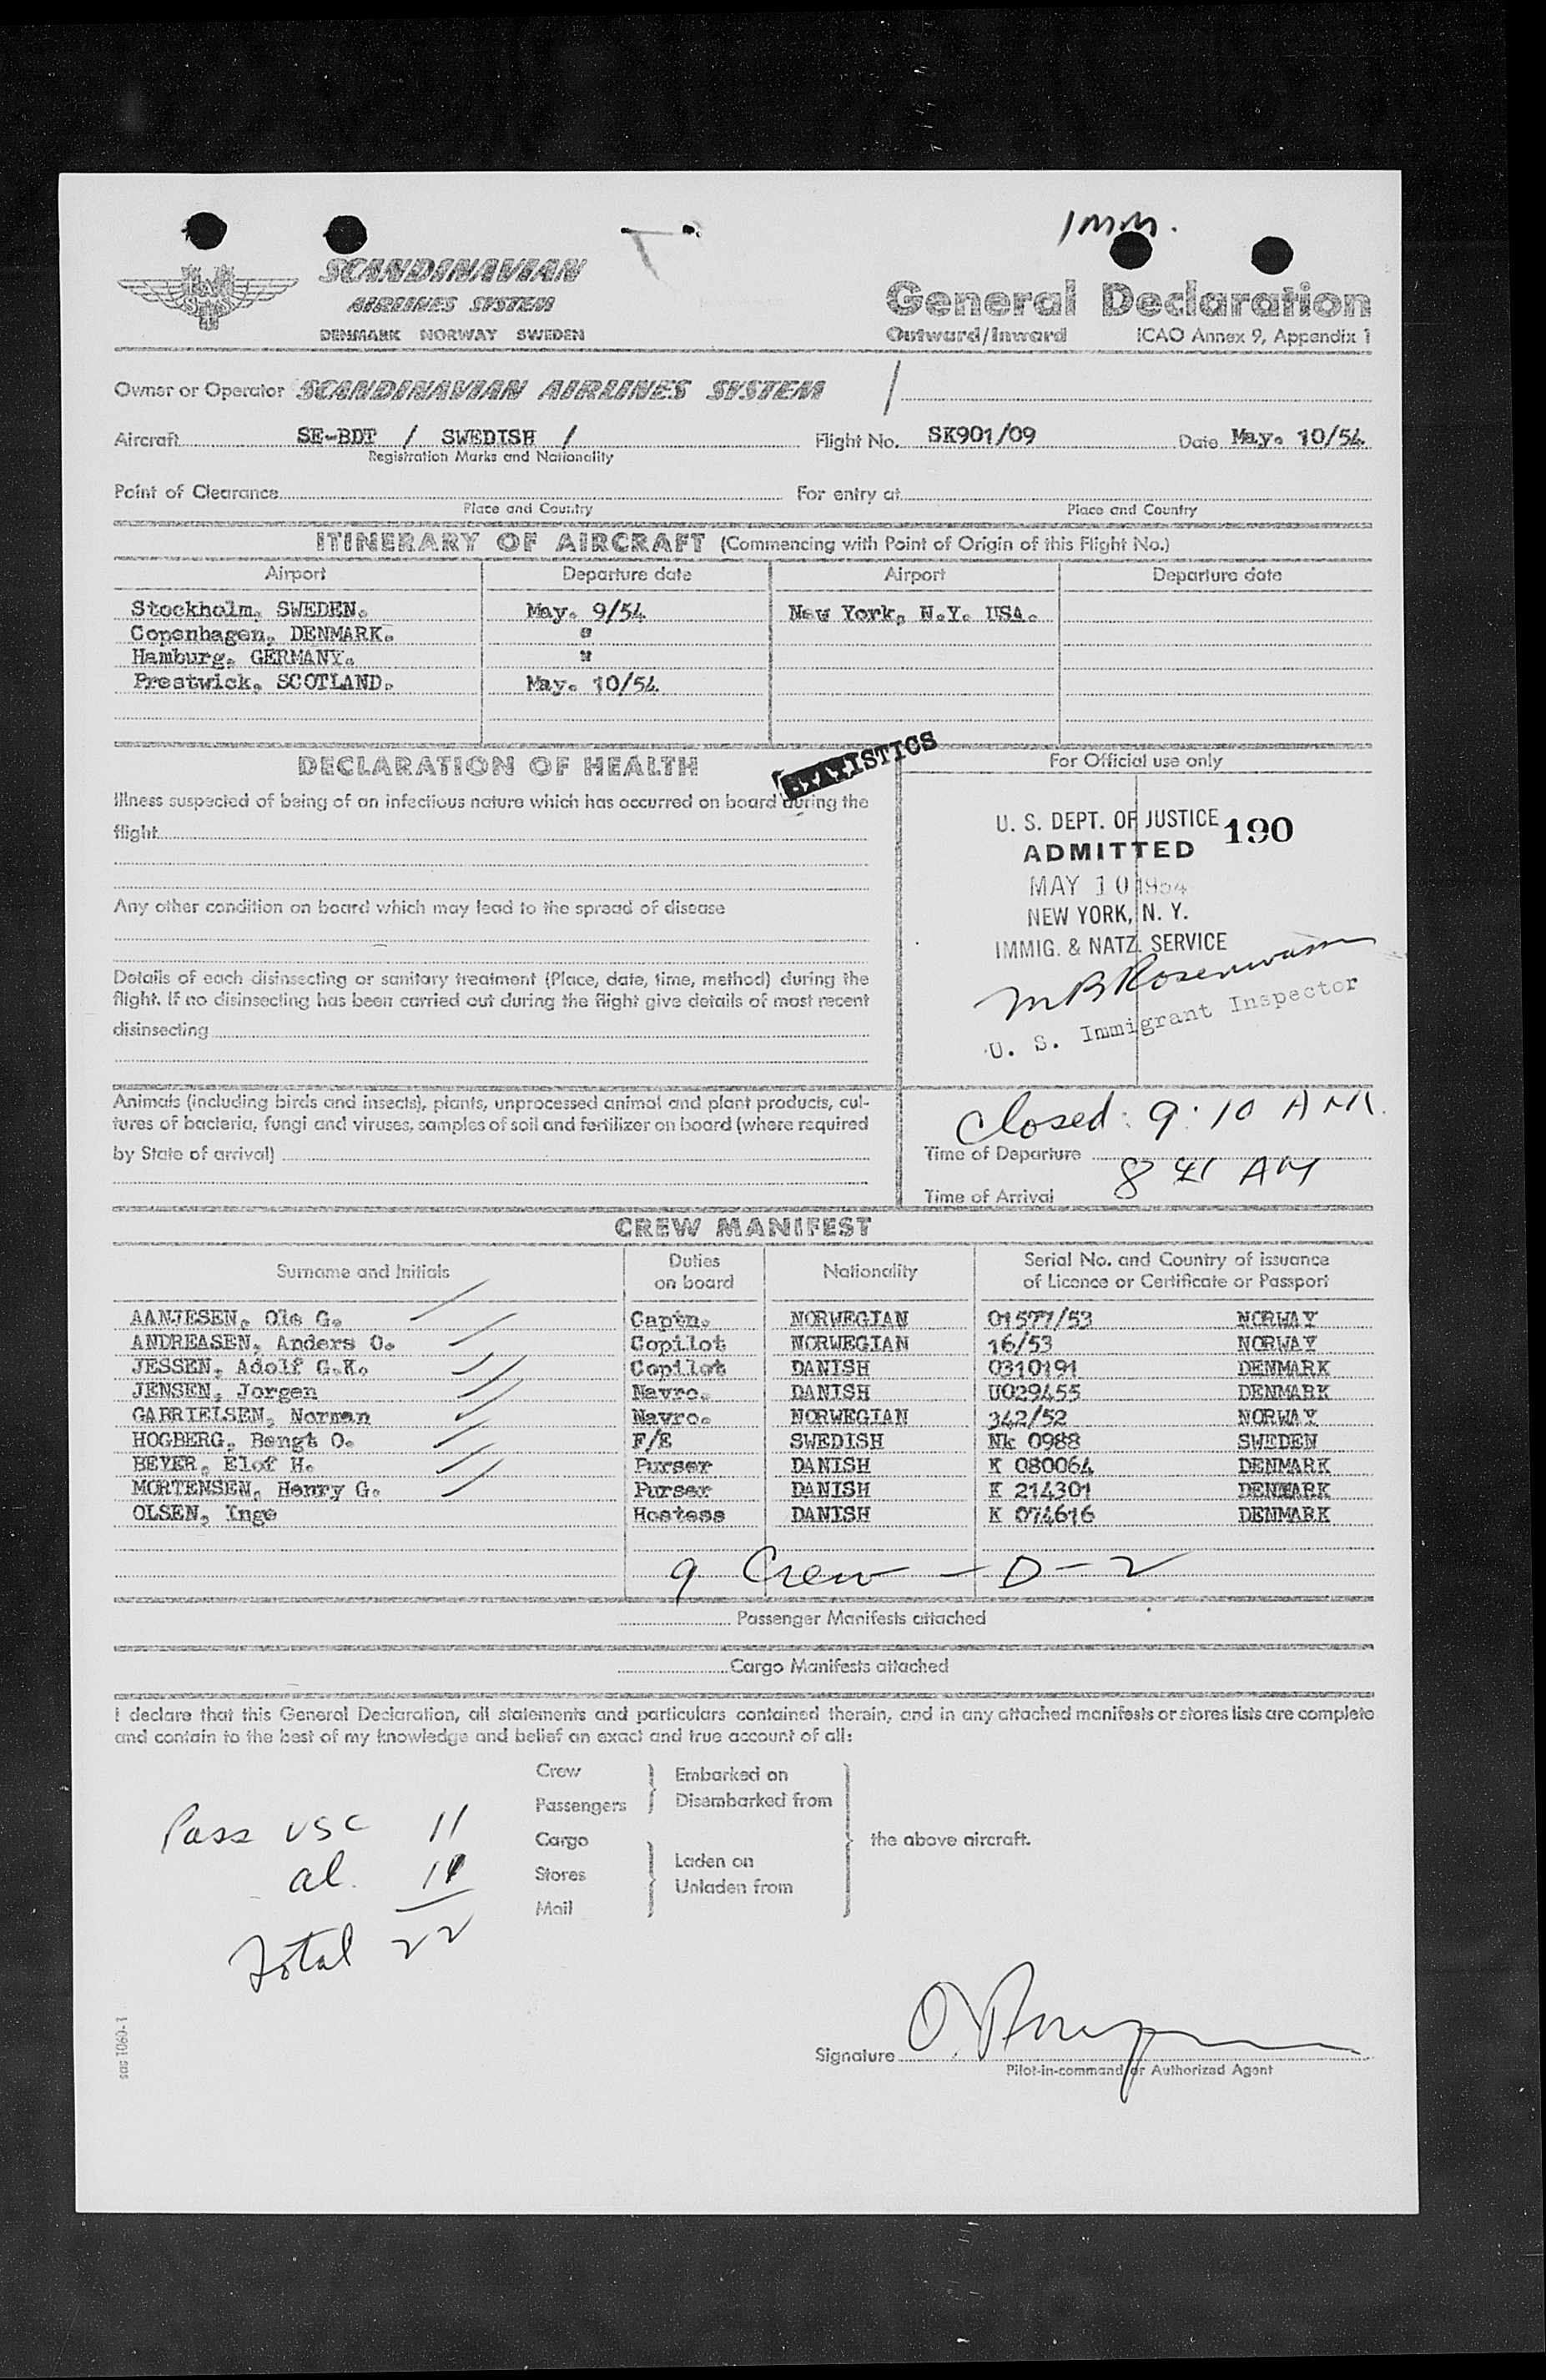 IMM.
SCANDINAVIAN
AIRLINES SYSTEM
DENMARK NORWAY SWEDEN
General Declaration
Outward/Inward ICAO Annex 9, Appendix 1
Owner or Operator SCANDINAVIAN AIRLINES SYSTEM /
Aircraft SE-BDT / SWEDISH / Flight No. SK901/09 Date May. 10/54
Registration Marks and Nationality
Point of Clearance For entry at
Place and Country Place and Country
ITINERARY OF AIRCRAFT (Commencing with Point of Origin of this Flight No.)
Airport Departure date Airport Departure date
Stockholm, SWEDEN. May. 9/54 New York, N.Y. USA.
Copenhagen, DENMARK. "
Hamburg. GERMANY. "
Prestwick. SCOTLAND. May. 10/54
STATISTICS
DECLARATION OF HEALTH
Illness suspected of being of an infectious nature which has occurred on board during the
flight
Any other condition on board which may lead to the spread of disease
Details of each disinsecting or sanitary treatment (Place, date, time, method) during the
flight. If no disinsecting has been carried out during the flight give details of most recent
disinsecting
Animals (including birds and insects), plants, unprocessed animal and plant products, cul-
tures of bacteria, fungi and viruses, samples of soil and fertilizer on board (where required
by State of arrival)
For Official use only
U. S. DEPT. OF JUSTICE 190
ADMITTED
MAY 10 1954
NEW YORK, N. Y.
IMMIG. & NATZ. SERVICE
U. S. Immigrant Inspector
Closed: 9:10 AM.
Time of Departure
8 41 AM
Time of Arrival
CREW MANIFEST
Surname and Initials Duties on board Nationality Serial No. and Country of issuance of Licence or Certificate or Passport
AANJESEN, Ole G. Captn. NORWEGIAN 01577/53 NORWAY
ANDREASEN, Anders O. Copilot NORWEGIAN 16/53 NORWAY
JESSEN, Adolf G.K. Copilot DANISH 0310191 DENMARK
JENSEN, Jorgen Navro. DANISH U029455 DENMARK
GABRIELSEN, Norman Navro. NORWEGIAN 342/52 NORWAY
HOGBERG, Bengt O. F/E SWEDISH Nk 0988 SWEDEN
BEYER, Elof H. Purser DANISH K 080064 DENMARK
MORTENSEN, Henry G. Purser DANISH K 214301 DENMARK
OLSEN, Inge Hostess DANISH K 074616 DENMARK
9 Crew — D-2
Passenger Manifests attached
Cargo Manifests attached
I declare that this General Declaration, all statements and particulars contained therein, and in any attached manifests or stores lists are complete
and contain to the best of my knowledge and belief an exact and true account of all:
Crew Embarked on
Passengers Disembarked from
Cargo the above aircraft.
Stores Laden on
Unladen from
Mail
Pass USC 11
al. 11
Total 22
Signature
Pilot-in-command or Authorized Agent
sas 1060-1